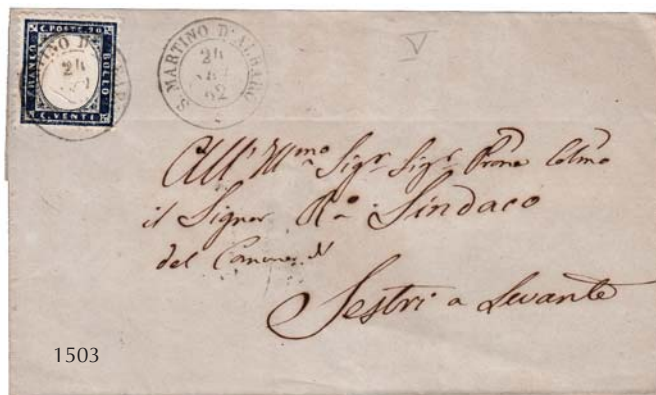 C. POSTE 20
FRANCO
BOLLO
C. VENTI
TINO D'ALBARO
24
S. MARTINO D'ALBARO
24
62
V
All' Ill.mo Sigr Sigr Prone Colmo
il Signor R.o Sindaco
del Comune di
Sestri a Levante
1503